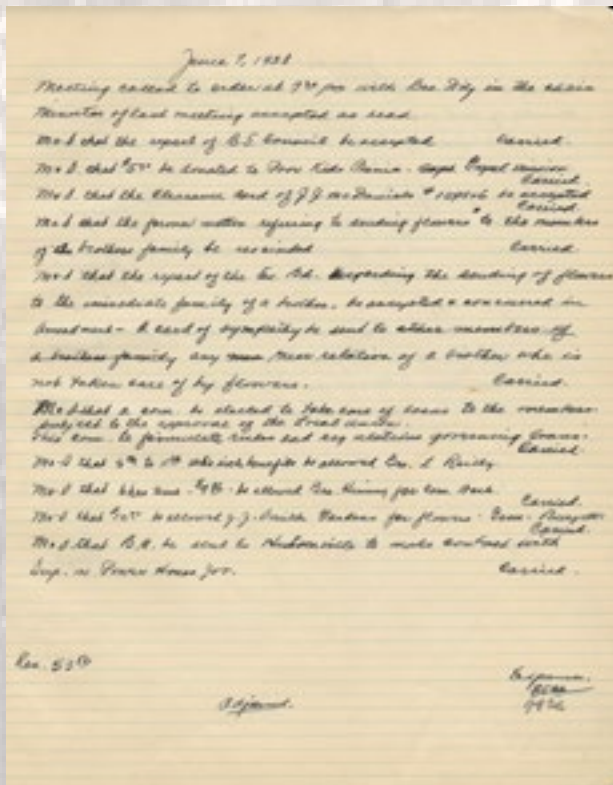 June 7, 1938
Meeting called to order at 7 30 pm with Bro. in the chair
Minutes of last meeting accepted as read
M & S that the report of B.T. Council be accepted Carried.
M & S that $5 00 be donated to Poor Kids
Carried.
M & S that the Clearance Card of J.J. McDaniels # be accepted
Carried
M & S that the former motion referring to sending flowers to the members
of the brothers family be rescinded Carried
M & S that the report of the Ex. Bd. regarding the sending of flowers
to the immediate family of a brother, be accepted & concurred in
Amendment - A card of sympathy be sent to other members of
a brothers family any near relation of a brother who is
not taken care of by flowers. Carried.
M & S that a com. be elected to take care of loans to the members
subject to the approval of the Local Union.
This com. to formulate rules and regulations governing loans.
Carried.
M & S that sick benefits be allowed Bro. L Reilly
M & S that be allowed Bro. for
Carried.
M & S that be allowed J.J. Smith for flowers
Carried.
M & S that B.A. be sent to to make contract with
Sup. Power House Job. Carried.
Rec. 53
Expenses
Adjourned.